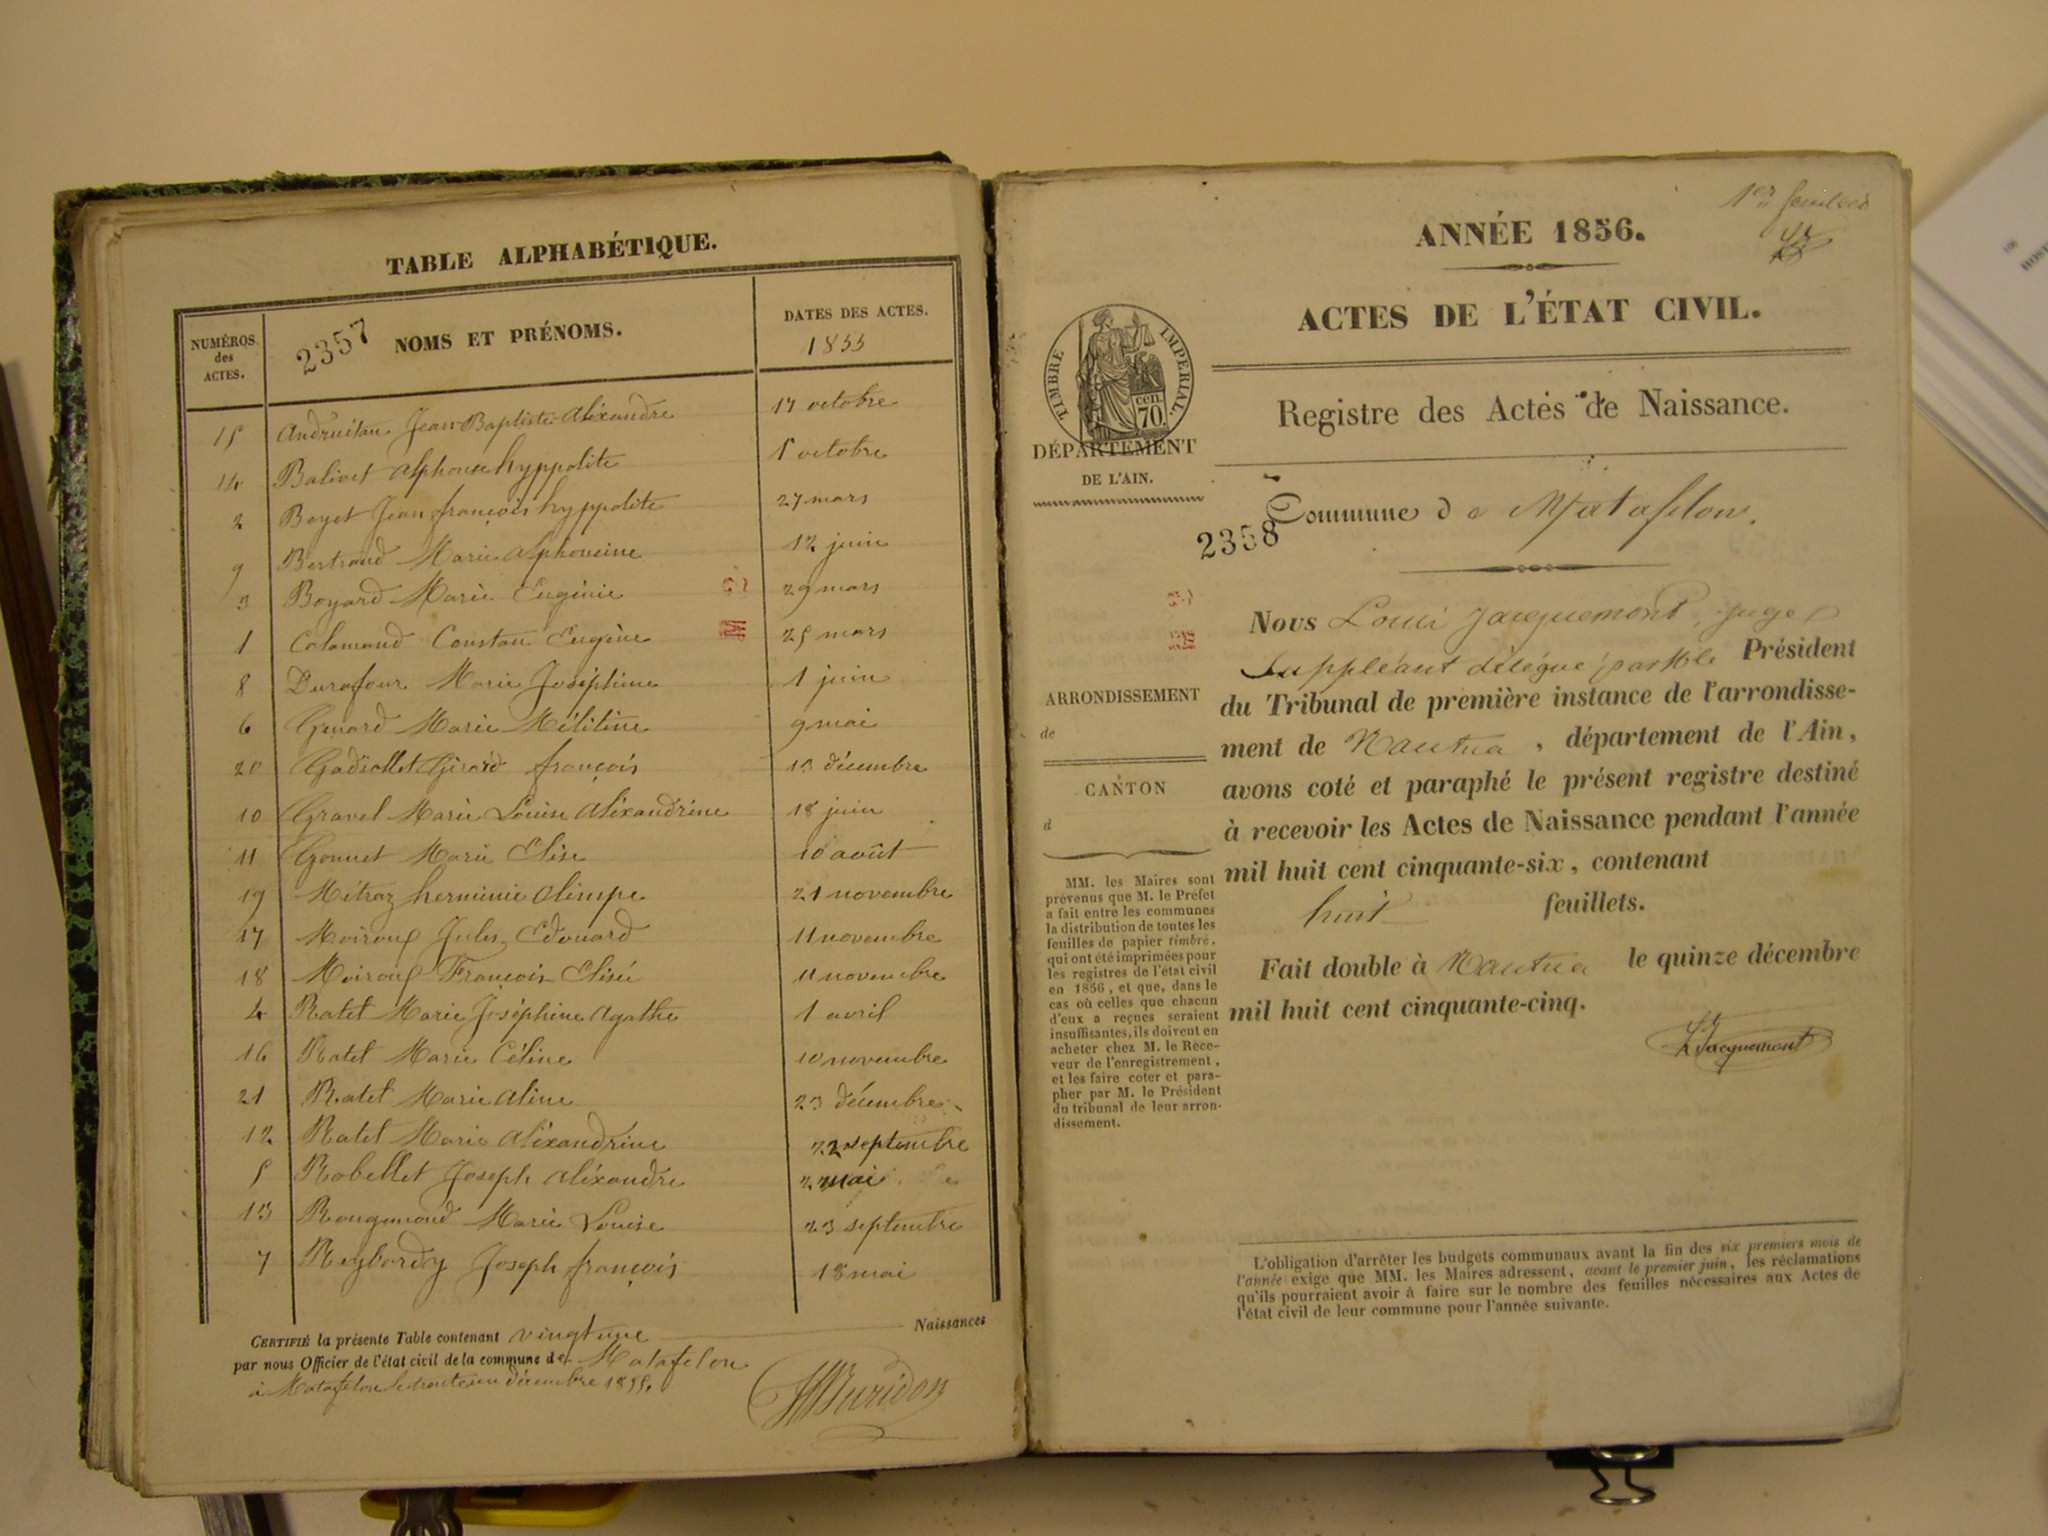 TABLE ALPHABÉTIQUE.
NUMÉROS des ACTES.
2357 NOMS ET PRÉNOMS.
DATES DES ACTES.
1855
15 Andruétan Jean-Baptiste Aléxandre 17 octobre
14 Balivet Alphonse hyppolite 5 octobre
2 Beyet Jean françois hyppolite 27 mars
9 Bertrand Marie Alphonsine 12 juin
3 Boyard Marie Eugénie 29 mars
1 Colomand Constan Eugène 25 mars
8 Durafour Marie Joséphine 1 juin
6 Genard Marie Mélitine 9 mai
20 Gadiollet Gérard françois 13 décembre
10 Gravel Marie Louise Aléxandrine 18 juin
11 Gonnet Marie Elise 10 août
19 Métraz herminie Olimpe 21 novembre
17 Moiroux Jules Edouard 11 novembre
18 Moiroux François Elisée 11 novembre
4 Ratet Marie Joséphine Agathe 1 avril
16 Ratet Marie Céline 10 novembre
21 Ratet Marie Aline 23 décembre
12 Ratet Marie Aléxandrine 22 septembre
5 Robellet Joseph Aléxandre 2 mai
13 Rougemond Marie Louise 23 septembre
7 Reybordy Joseph françois 18 mai
CERTIFIÉ la présente Table contenant vingt une Naissances
par nous Officier de l'état civil de la commune de Matafelon
à Matafelon le trente un décembre 1855.
1er feuillet
ANNÉE 1856.
ACTES DE L'ÉTAT CIVIL.
Registre des Actes de Naissance.
TIMBRE IMPÉRIAL.
CEN. 70.
DÉPARTEMENT
DE L'AIN.
Commune de Matafelon.
2358
Nous Louis Jacquemont, juge
suppléant délégué par Mr le Président
du Tribunal de première instance de l'arrondisse-
ment de Nantua, département de l'Ain,
avons coté et paraphé le présent registre destiné
à recevoir les Actes de Naissance pendant l'année
mil huit cent cinquante-six, contenant
huit feuillets.
Fait double à Nantua le quinze décembre
mil huit cent cinquante-cinq.
L Jacquemont
ARRONDISSEMENT
de
CANTON
d
MM. les Maires sont
prévenus que M. le Préfet
a fait entre les communes
la distribution de toutes les
feuilles de papier timbré,
qui ont été imprimées pour
les registres de l'état civil
en 1856, et que, dans le
cas où celles que chacun
d'eux a reçues seraient
insuffisantes, ils doivent en
acheter chez M. le Rece-
veur de l'enregistrement,
et les faire coter et para-
pher par M. le Président
du tribunal de leur arron-
dissement.
L'obligation d'arrêter les budgets communaux avant la fin des six premiers mois de
l'année exige que MM. les Maires adressent, avant le premier juin, les réclamations
qu'ils pourraient avoir à faire sur le nombre des feuilles nécessaires aux Actes de
l'état civil de leur commune pour l'année suivante.